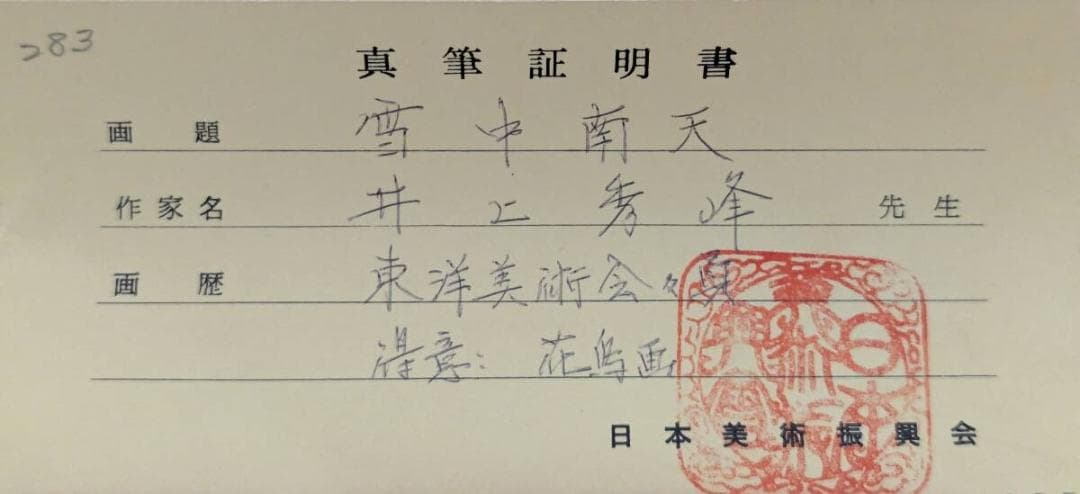 283
真筆証明書
画題 雪中南天
作家名 井上秀峰 先生
画歴 東洋美術会々員
得意：花鳥画
日本美術振興会